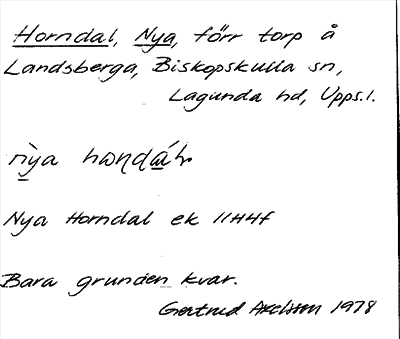 Horndal, Nya, förr torp å
Landsberga, Biskopskulla sn,
Lagunda hd, Upps.l.
nỳa
Nya Horndal ek 11H4f
Bara grunden kvar.
Gertrud Axelsson 1978